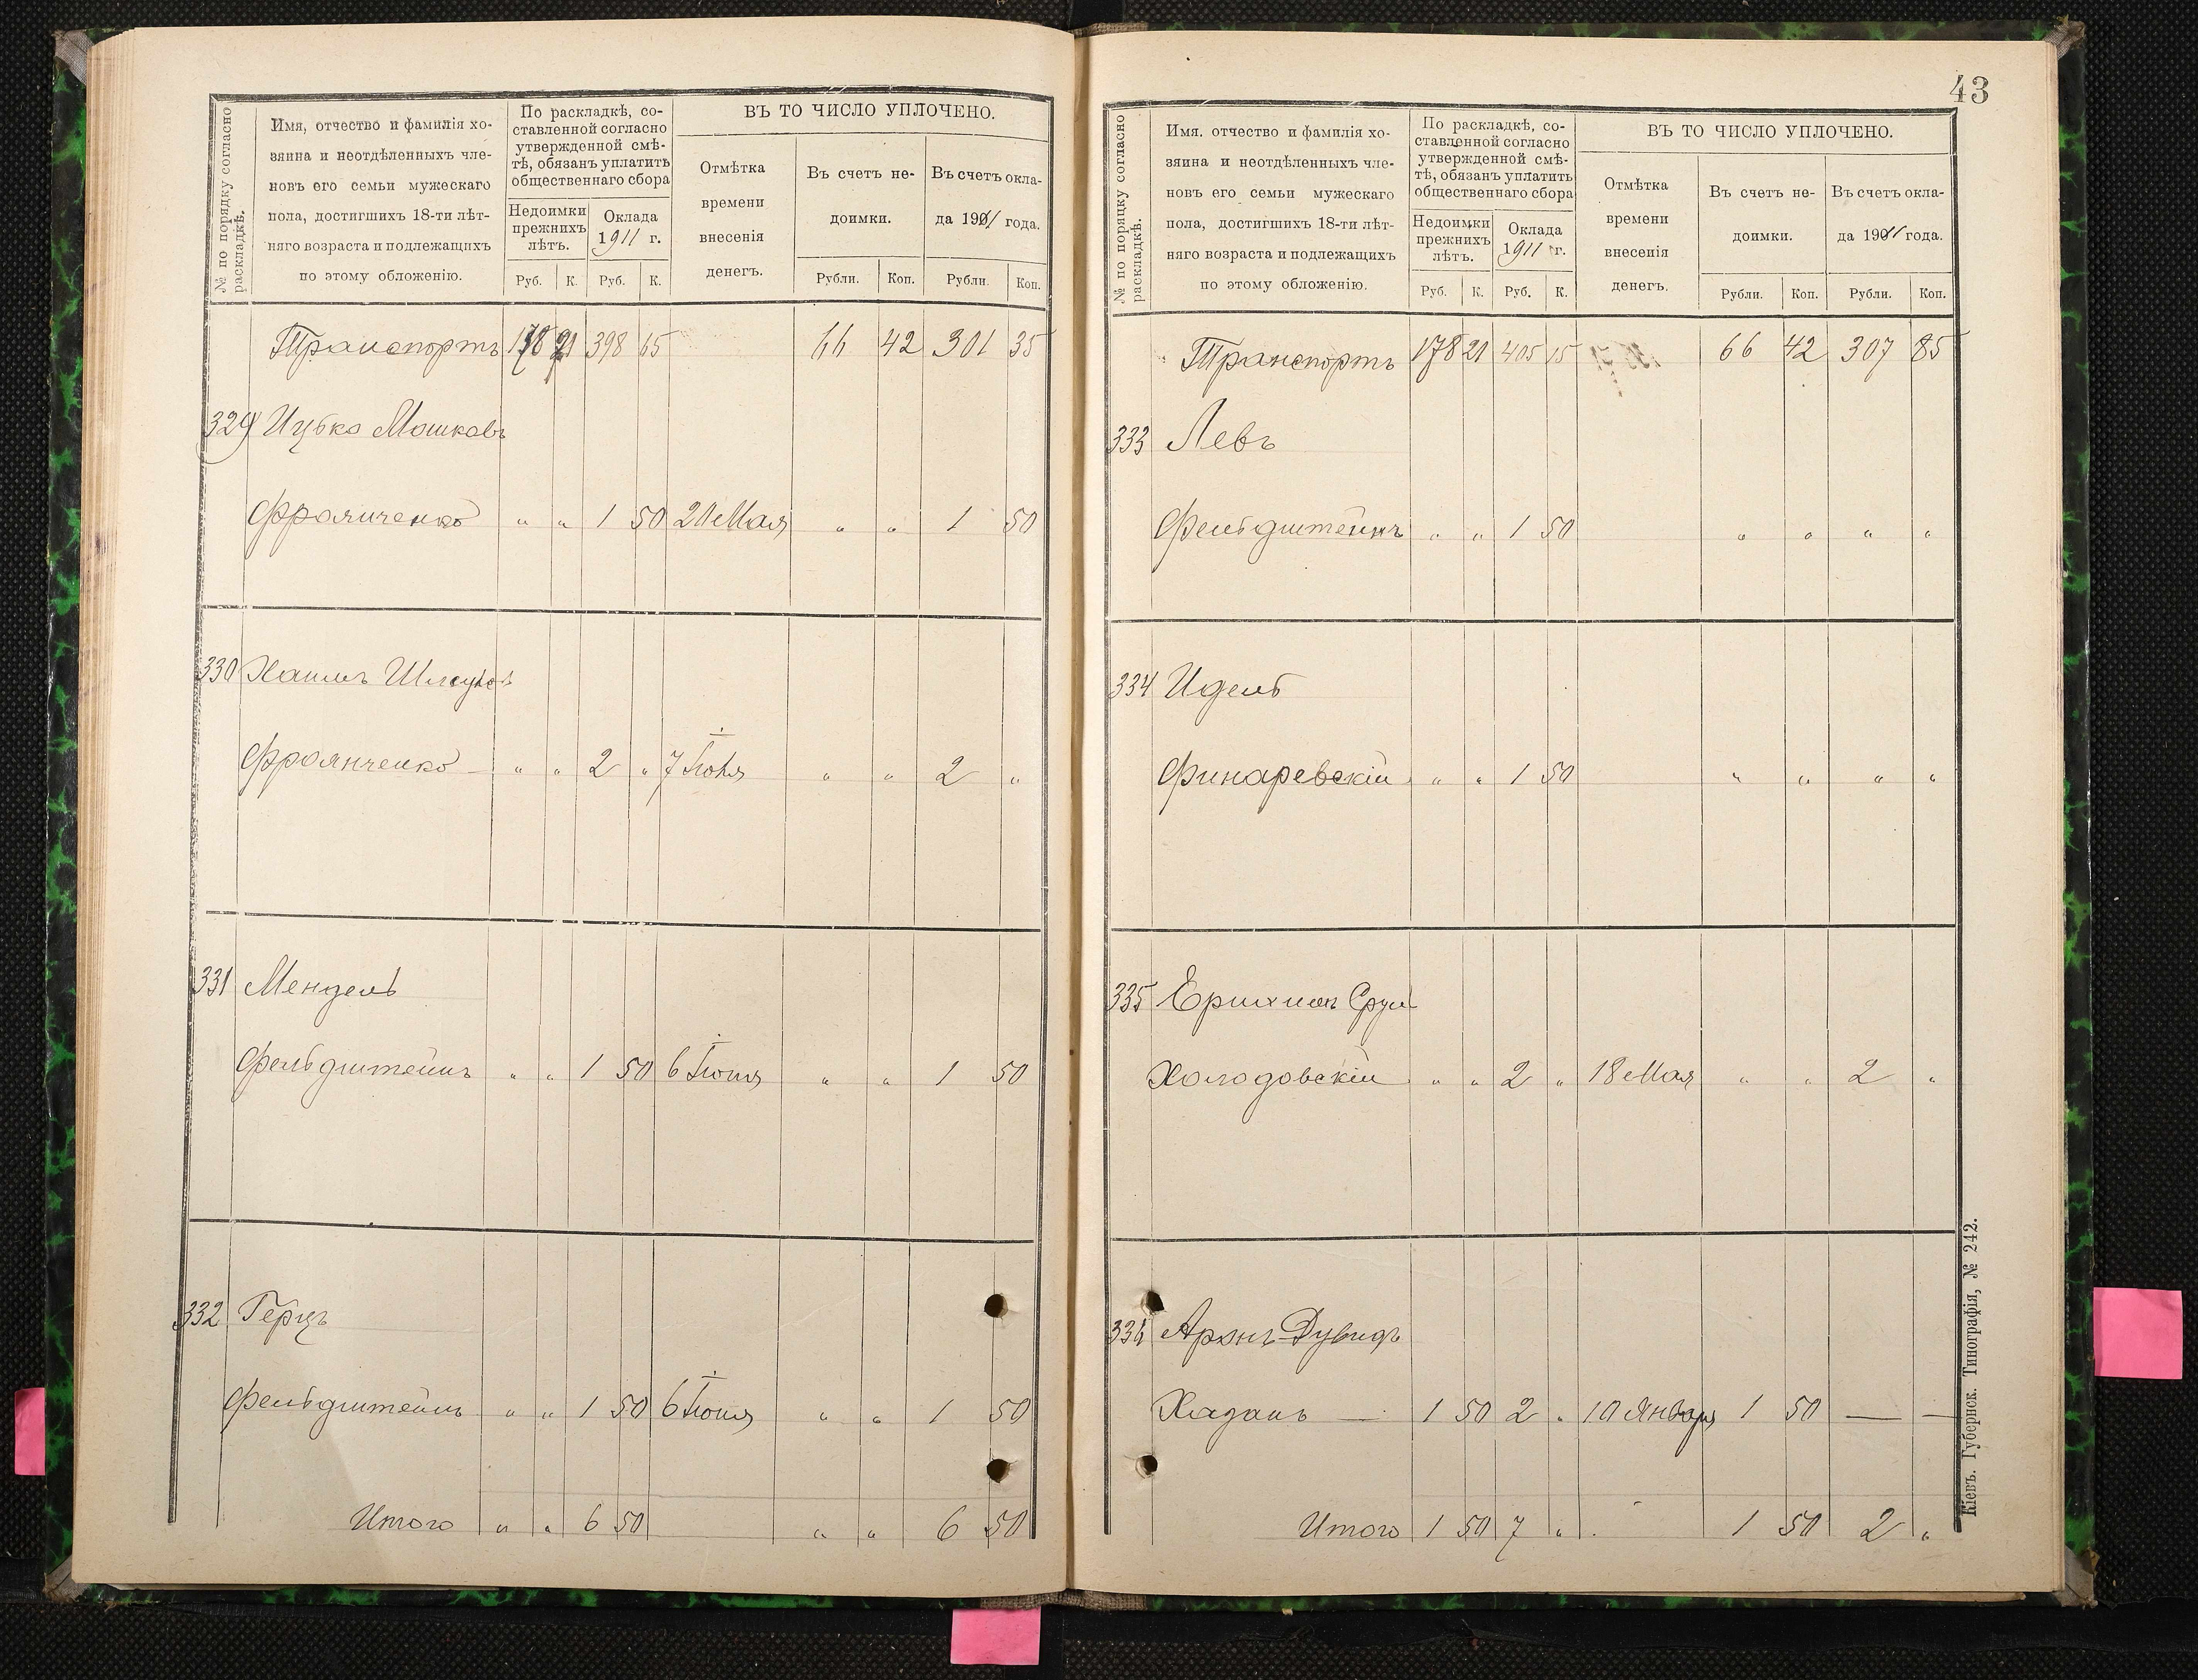 № по порядку согласно раскладкѣ.
Имя, отчество и фамилія хо-
зяина и неотдѣленныхъ чле-
новъ его семьи мужескаго
пола, достигшихъ 18-ти лѣт-
няго возраста и подлежащихъ
по этому обложенію.
По раскладкѣ, со-
ставленной согласно
утвержденной смѣ-
тѣ, обязанъ уплатить
общественнаго сбора
Недоимки
прежнихъ
лѣтъ.
Оклада
1911 г.
Руб. К. Руб. К.
ВЪ ТО ЧИСЛО УПЛОЧЕНО.
Отмѣтка
времени
внесенія
денегъ.
Въ счетъ не-
доимки.
Въ счетъ окла-
да 1911 года.
Рубли. Коп. Рубли. Коп.
Транспортъ 178 21 398 65 66 42 301 35
329 Ицько Мошковъ
Фроянченко " " 1 50 20 Мая " " 1 50
330 Хаимъ
Фроянченко " " 2 " 7 " " 2 "
331 Мендель
Фельдштейнъ " " 1 50 6 Іюня " " 1 50
332 Герцъ
Фельдштейнъ " " 1 50 6 Іюня " " 1 50
Итого " " 6 50 " " 6 50
43
№ по порядку согласно раскладкѣ.
Имя. отчество и фамилія хо-
зяина и неотдѣленныхъ чле-
новъ его семьи мужескаго
пола, достигшихъ 18-ти лѣт-
няго возраста и подлежащихъ
по этому обложенію.
По раскладкѣ, со-
ставленной согласно
утвержденной смѣ-
тѣ, обязанъ уплатить
общественнаго сбора
Недоимки
прежнихъ
лѣтъ.
Оклада
1911 г.
Руб. К. Руб. К.
ВЪ ТО ЧИСЛО УПЛОЧЕНО.
Отмѣтка
времени
внесенія
денегъ.
Въ счетъ не-
доимки.
Въ счетъ окла-
да 1911 года.
Рубли. Коп. Рубли. Коп.
Транспортъ 178 21 405 15 66 42 307 85
333 Левъ
Фельдштейнъ " " 1 50 " " " "
334 Идель
Финаревскій " " 1 50 " " " "
335 Срул
Холодовскій " " 2 " 18 Мая " " 2 "
336 Аронъ-Дувидъ
Хазанъ — 1 50 2 " 10 Января 1 50 — —
Итого 1 50 7 " 1 50 2 "
Кіевъ. Губернск. Типографія, № 242.